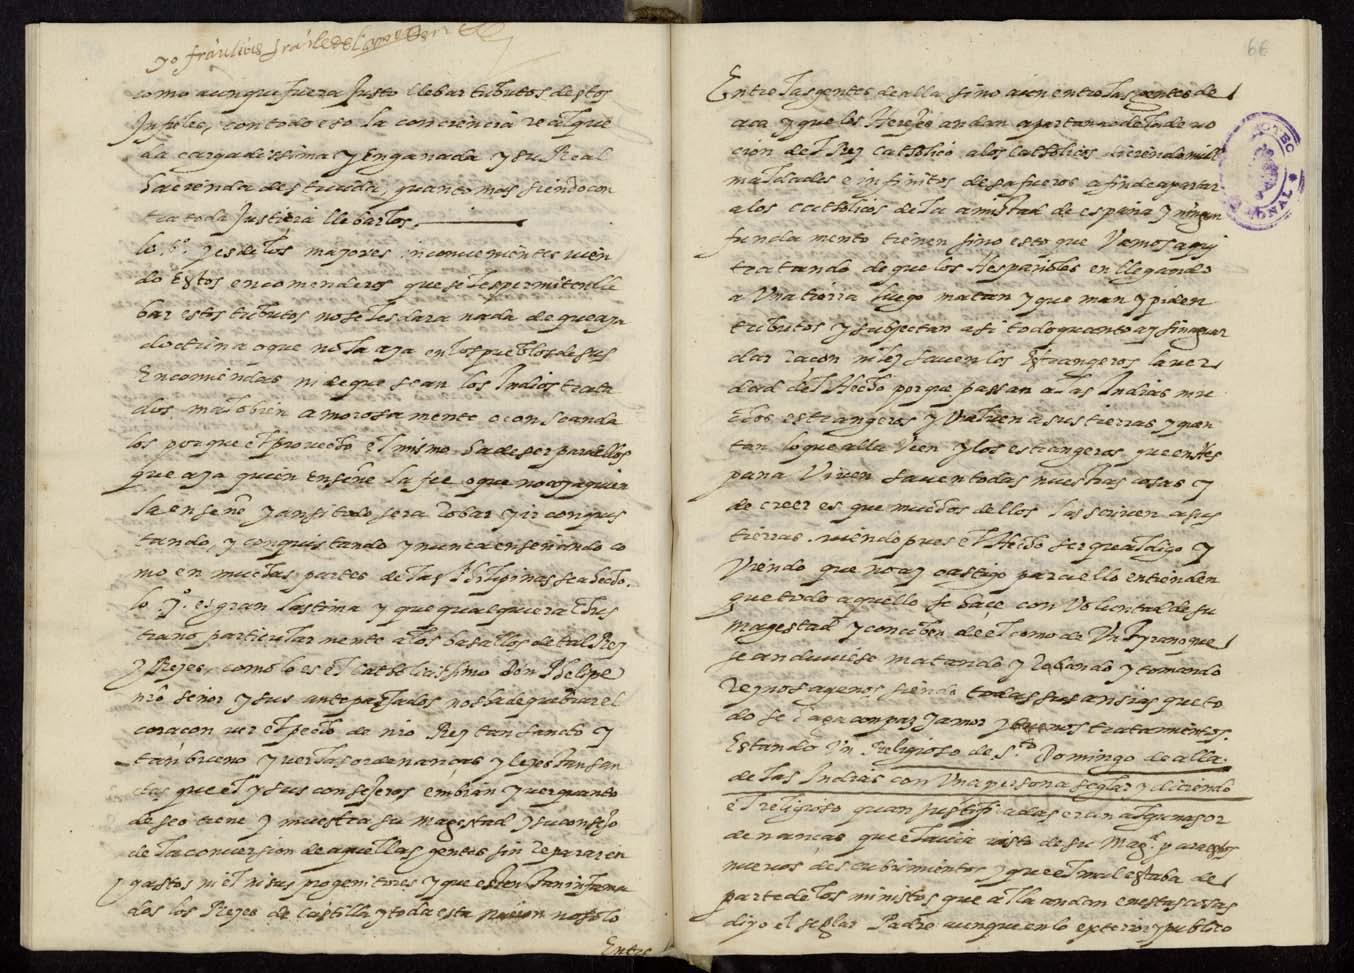 yo fray luis fraile del
como aunque fuera Justo llebar tributos destos
Infieles, con todo eso la conciencia real que
da cargadissima y enganada y su Real
hacienda destruida, quanto mas siendo con
tra toda Justicia llebarlos.
lo 6º. y es de los majores inconvenientes vien
do estos encomenderos que se les permiten lle
bar estos tributos no se les dara nada de que aja
doctrina o que no la aja en los pueblos de sus
Encomiendas ni de que sean los Indios trata
dos mal o bien amorosamente o con scanda
los porque el provecho el mismo ha de ser para ellos
que aja quien enseñe la fee o que no aja quien
la enseñe y ansi todo sera robar y ir conquis
tando, y conquistando y nunca enseñando co
mo en muchas partes de las Philipinas se a hecho.
lo 7º. es gran lastima y que qualquiera chris
tiano particularmente a los basallos de tal Rey
y Reyes, como lo es el Catholicissimo Don Phelipe
nro señor y sus antepassados nos ha de quebrar el
coraçon ver el pecho de nro Rey tan sancto y
tan bueno y ver las ordenanças y lejes tan san
ctas que el y sus consejeros embian y ver quanto
deseo tiene y muestra su magestad y su consejo
de la conversion de aquellas gentes sin reparar en
gastos ni el ni sus progenitores y que esten tan infama
dos los Rejes de Castilla y toda esta nacion no solo
Entre
66
Entre las gentes de alla sino aun entre las gentes de
aca y que los Herejes andan apartando de la devo
cion del Rey catholico a los catholicos diciendo mill
maldades e infinitos desafueros a fin de apartar
a los catholicos de la amistad de españa y ningun
fundamento tienen sino esto que vamos aqui
tratando de que los Hespañoles en llegando
a una tierra luego matan y queman y piden
tributos y subjectan a si todo quanto ay sin aguar
dar raçon ni lej saven los estrangeros la ver
dad del Hecho porque passan a las Indias mu
chos estrangeros y vuelven a sus tierras y quen
tan lo que alla veen y los estrangeros que en Hes
pana viven saven todas nuestras cosas y
de creer es que muchos dellos las scriven a sus
tierras. viendo pues el Hecho ser qual digo y
viendo que no ay castigo para ello entienden
que todo aquello se hace con voluntad de su
magestad y conciben de el como de un tyrano que
se anduviese matando y robando y tomando
Reynos agenos siendo todas sus ansias que to
do se haga con paz y amor y buenos tratamientos.
Estando un Religioso de Sto Domingo de alla
de las Indias con una persona seglar y diciendo
el religioso quan justificadas eran algunas or
denanças que el avia visto de su Magd. para estos
nuevos descubrimientos y que el mal estaba de
parte de los ministros que alla andan en estas cosas
dijo el seglar Padre aunque en lo exterior y publico